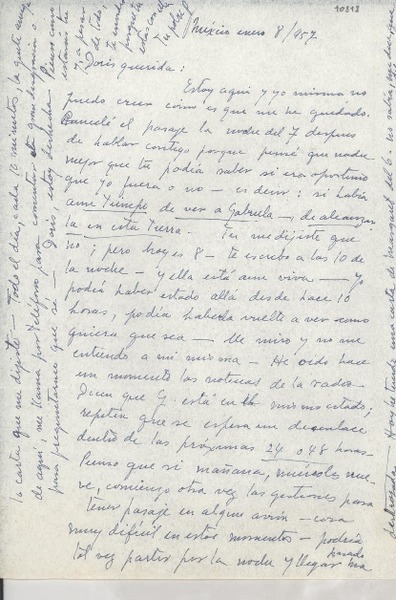 10818
México enero 8/957
Doris querida:
Estoy aquí y yo misma no
puedo creer como es que me he quedado.
Cancelé el pasaje la noche del 7 despues
de hablar contigo porque pensé que nadie
mejor que tu podía saber si era oportuno
que yo fuera o no – es decir: si había
aun tiempo de ver a Gabriela – de alcanzar-
la en esta tierra. Tu me dijiste que
no; pero hoy es 8 – te escribo a las 10 de
la noche – y ella está aun viva – yo
podía haber estado allá desde hace 10
horas, podía haberla vuelto a ver como
quiera que sea – Me miro y no me
entiendo a mí misma – He oido hace
un momento las noticias de la radio
Dicen que G. está en el mismo estado,
repiten que se espera un desenlace
dentro de las próximas 24 o 48 horas –
Pienso que si mañana, miércoles nue-
ve, comienzo otra vez las gestiones para
tener pasaje en algun avión – cosa
muy difícil en estos momentos – podría
tal vez partir por la noche y llegar pasado ma
la carta que me dijiste – Todo el día, cada 10 minutos, la gente
de aquí, me llama por teléfono para
para preguntarme que sé – Doris, estoy deshecha Pienso como
estarás tu
y, a pesar
de todo,
Tu
Hoy he tenido una carta de del 6.